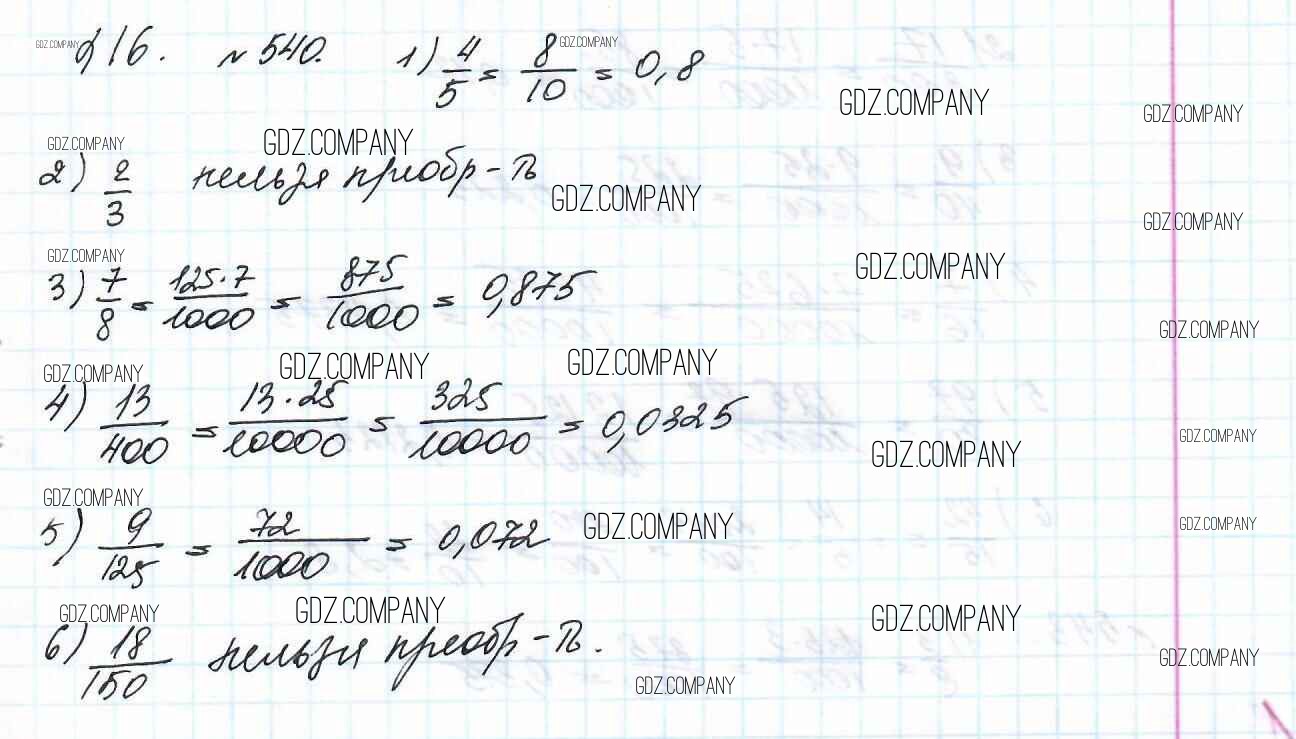 GDZ.COMPANY §16. №540. 1) 4/5 = 8/10 = 0,8 GDZ.COMPANY
GDZ.COMPANY GDZ.COMPANY
GDZ.COMPANY GDZ.COMPANY
2) 2/3 нельзя преобр-ть GDZ.COMPANY
GDZ.COMPANY
GDZ.COMPANY GDZ.COMPANY
3) 7/8 = 125·7/1000 = 875/1000 = 0,875
GDZ.COMPANY
GDZ.COMPANY GDZ.COMPANY GDZ.COMPANY
4) 13/400 = 13·25/10000 = 325/10000 = 0,0325
GDZ.COMPANY GDZ.COMPANY
GDZ.COMPANY
5) 9/125 = 72/1000 = 0,072 GDZ.COMPANY GDZ.COMPANY
GDZ.COMPANY GDZ.COMPANY GDZ.COMPANY
6) 18/150 нельзя преобр-ть.
GDZ.COMPANY
GDZ.COMPANY